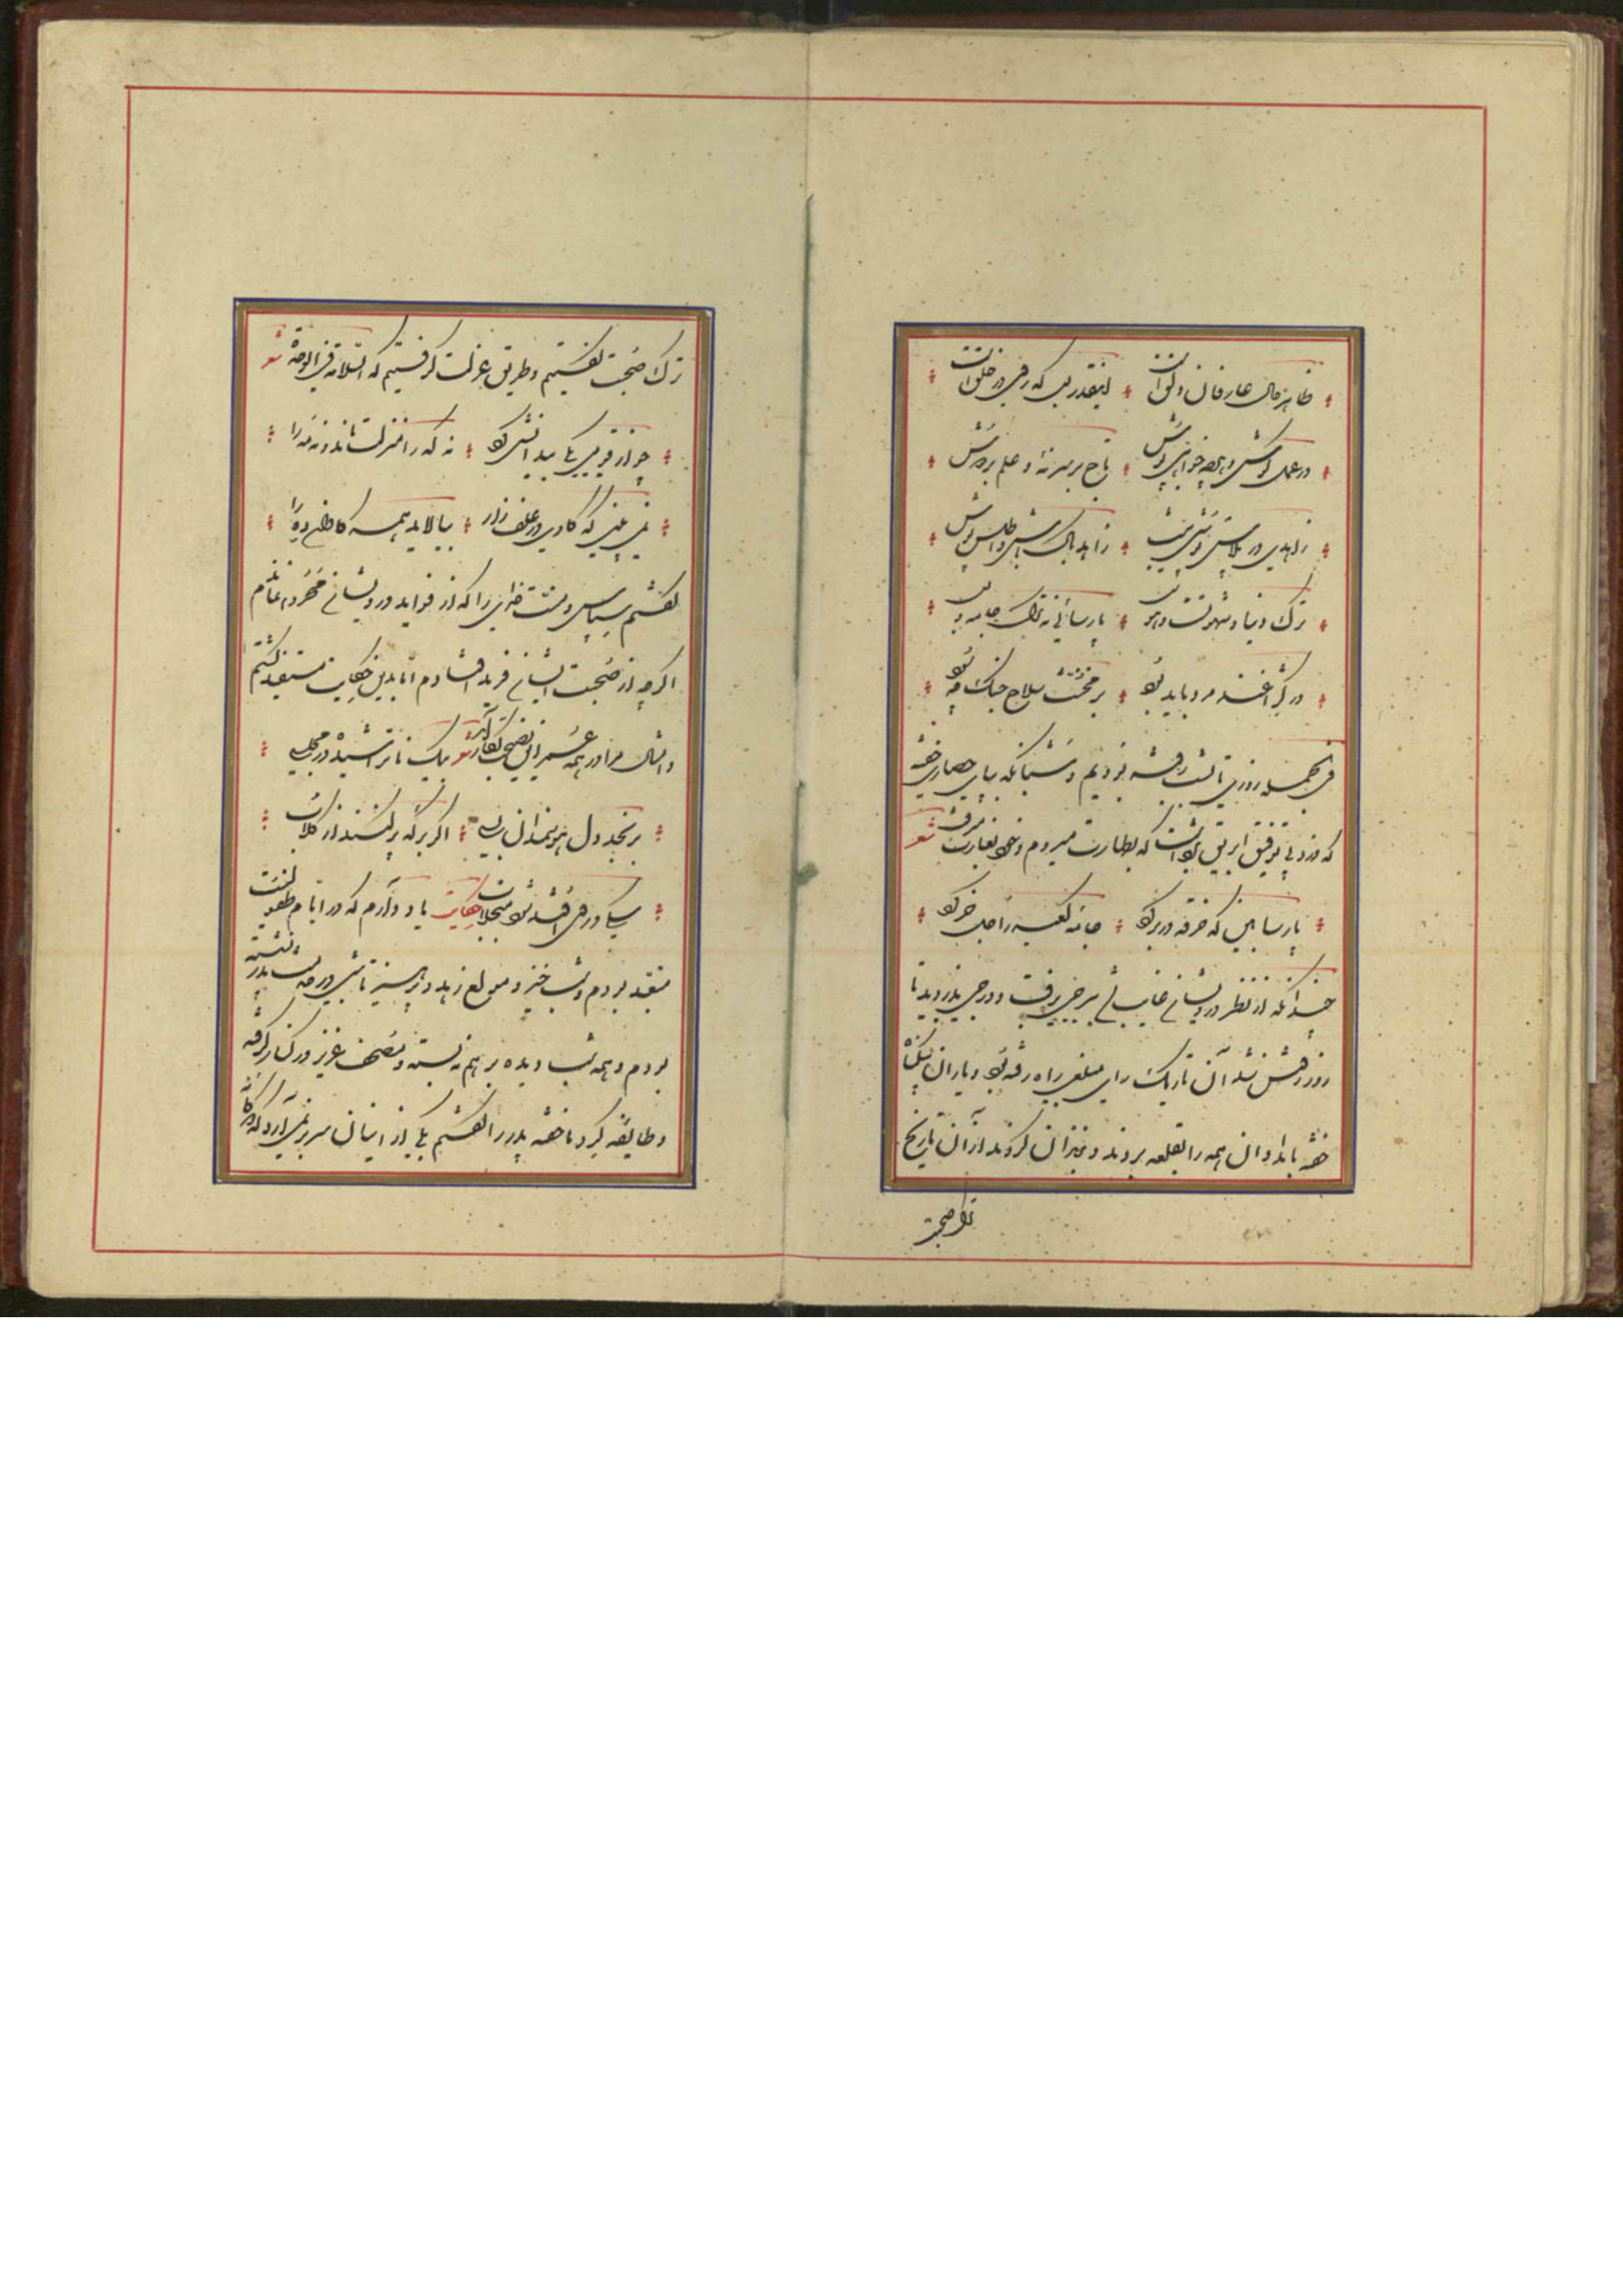 ظاهر حال عارفان دلق است اینقدر بس که روی در خلق است
در عمل کوش و هر چه خواهی پوش تاج بر سر نه و علم بر دوش
زاهدی در پلاس پوشی نیست زاهد پاک باش و اطلس پوش
ترک دنیا و شهوتست و هوس پارسائی نه ترک جامه و بس
در کژاغند مرد باید بود بر مخنث سلاح جنگ چه سود
فی الجمله روزی تا بشب رفته بودیم و شبانگه بپای حصاری خفته
که دزد بی توفیق ابریق رفیق برداشت که بطهارت میروم و خود بغارت میرفت شعر
پارسا بین که خرقه در بر کرد جامه کعبه را جل خر کرد
چندانکه از نظر درویشان غایب شد ببرجی برفت و درجی بدزدید تا
روز روشن شد آن تاریک رای مبلغی راه رفته بود و یاران بیگناه
خفته بامدادان همه را بقلعه بردند و بزندان کردند از آن تاریخ
ترک صحبت
ترک صحبت گفتیم و طریق عزلت گرفتیم که السلامة فی الوحدة شعر
چو از قومی یکی بیدانشی کرد نه که را منزلت ماند نه مه را
نمی بینی که گاوی در علف زار بیالاید همه گاوان ده را
گفتم سپاس و منت خدایرا که از فواید درویشان محروم نماندم
اگر چه از صحبت ایشان فرید افتادم اما بدین حکایت مستفید گشتم
و امثال مرا در همه عمر این نصیحت بکار آید شعر بیک ناتراشیده در مجلسی
برنجد دل هوشمندان بسی اگر برکه پر کنند از گلاب
سگی در وی افتد شود منجلاب حکایت یاد دارم که در ایام طفولیت
متعبد بودم و شب خیز و مولع زهد و پرهیز تا شبی در خدمت پدر نشسته
بودم و همه شب دیده بر هم نه بسته و مصحف عزیز در کنار گرفته
و طایفه گرد ما خفته پدر را گفتم یکی از اینان سر بر نمی آرد که دوگانه